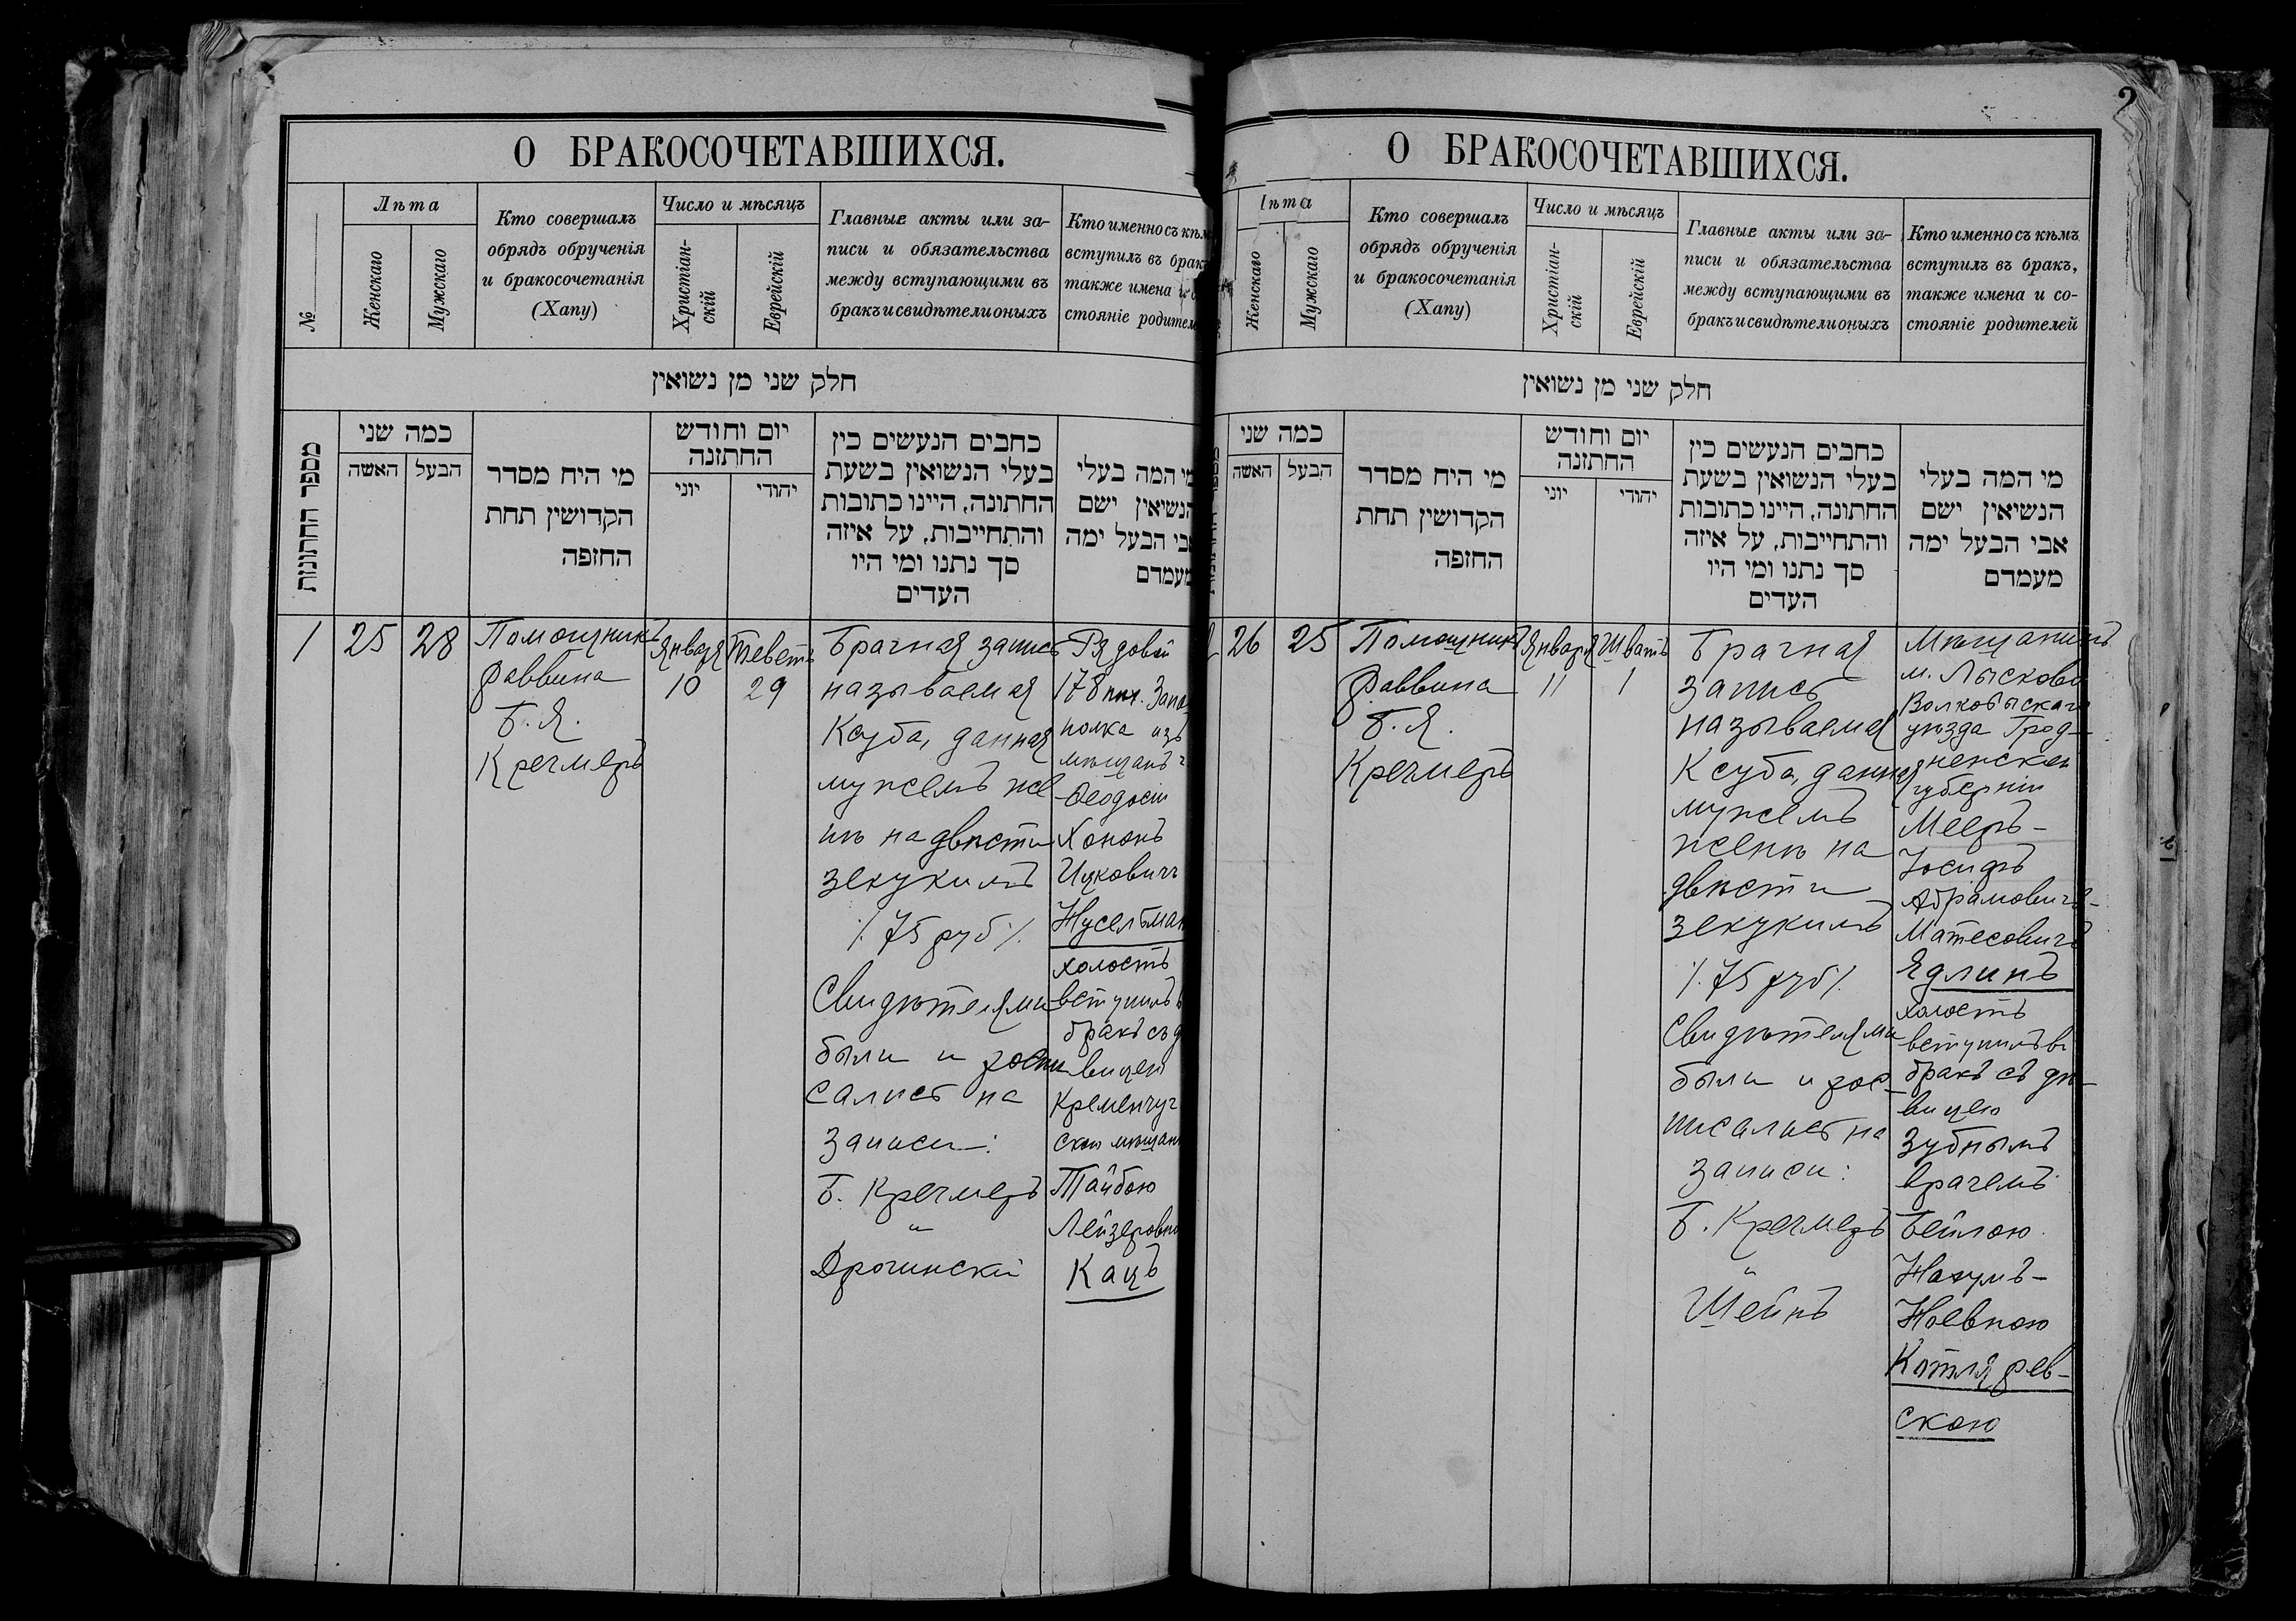 О БРАКОСОЧЕТАВШИХСЯ.
№
Лѣта
Женскаго
Мужскаго
Кто совершалъ
обрядъ обрученія
и бракосочетанія
(Хапу)
Число и мѣсяцъ
Христіан-
скій
Еврейскій
Главные акты или за-
писи и обязательства
между вступающими въ
бракъ и свидѣтели оныхъ
Кто именно съ кѣм
вступилъ въ брак
также имена и
стояніе родител
חלק שני מן נשואין
מספר החתונות
כמה שני
האשה
הבעל
מי היח מסדר
הקדושין תחת
החזפה
יום וחודש
החתזנה
יוני
יהודי
כחבים הנעשים כין
בעלי הנשואין בשעת
החתונה, היינו כתובות
והתחייבות, על איזה
סך נתנו ומי היו
העדים
מי המה בעלי
הנשיאין ישם
אבי הבעל ימה
מעמדם
1
25
28
Помощникъ
раввина
Б. Я.
Кречмеръ
Января
10
Теветъ
29
Брачная запись
называемая
Ксуба, данная
мужемъ же
нѣ на двѣсти
зекукимъ
/. 75 руб /.
Свидѣтелями
были и роспи
сались на
записи:
Б. Кречмеръ
"
Дрогинскій
Рядовой
178 пѣх. Запа
полка изъ
мѣщанъ г
Ѳеодосіи
Хононъ
Ицковичъ
Нусельман
холостъ
вступилъ в
бракъ съ д
вицею
Кременчуг
скою мѣщан
Тайбою
Лейзеровн
Кацъ
2
О БРАКОСОЧЕТАВШИХСЯ.
ѣта
Женскаго
Мужскаго
Кто совершалъ
обрядъ обрученія
и бракосочетанія
(Хапу)
Число и мѣсяцъ
Христіан-
скій
Еврейскій
Главные акты или за-
писи и обязательства
между вступающими въ
бракъ и свидѣтели оныхъ
Кто именно съ кѣмъ
вступилъ въ бракъ,
также имена и со-
стояніе родителей
חלק שני מן נשואין
כמה שני
האשה
הבעל
מי היח מסדר
הקדושין תחת
החזפה
יום וחודש
החתזנה
יוני
יהודי
כחבים הנעשים כין
בעלי הנשואין בשעת
החתונה, היינו כתובות
והתחייבות, על איזה
סך נתנו ומי היו
העדים
מי המה בעלי
הנשיאין ישם
אבי הבעל ימה
מעמדם
26
25
Помощникъ
раввина
Б. Я.
Кречмеръ
Января
11
Шватъ
1
Брачная
запись
называемая
Ксуба, данная
мужемъ
женѣ на
двѣсти
зекукимъ
/. 75 руб /.
Свидѣтелями
были и рос-
писались на
записи:
Б. Кречмеръ
"
Шейнъ
Мѣщанинъ
м. Лысково
Волковыскаго
уѣзда Грод-
ненской
губерніи
Мееръ-
Іосифъ
Абрамовичъ-
Матесовичъ
Ядлинъ
холостъ
вступилъ въ
бракъ съ дѣ-
вицею
Зубнымъ
врачемъ
Бейлою
Нахумъ-
Ноевною
Котлярев-
скою